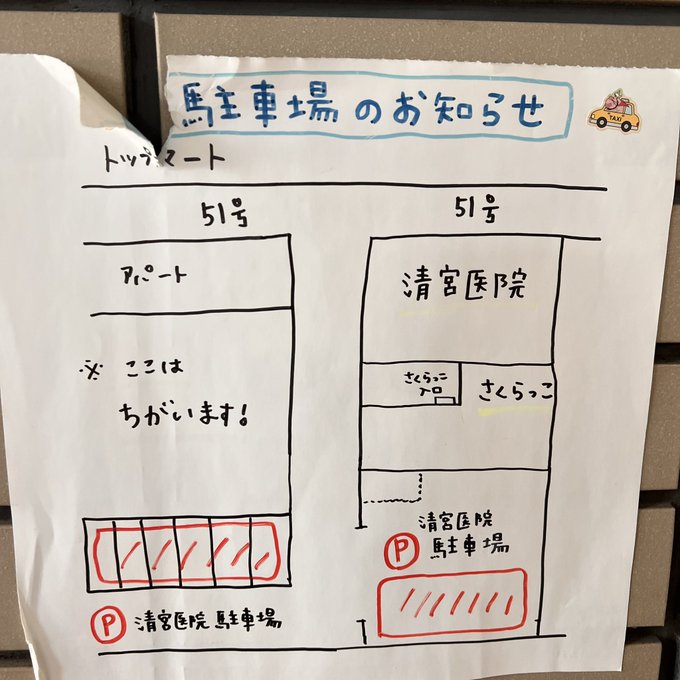 駐車場のお知らせ
TAXI
トップマート
51号
51号
アパート
清宮医院
※ ここは
ちがいます!
さくらっこ
入口
さくらっこ
清宮医院
P 駐車場
P 清宮医院 駐車場